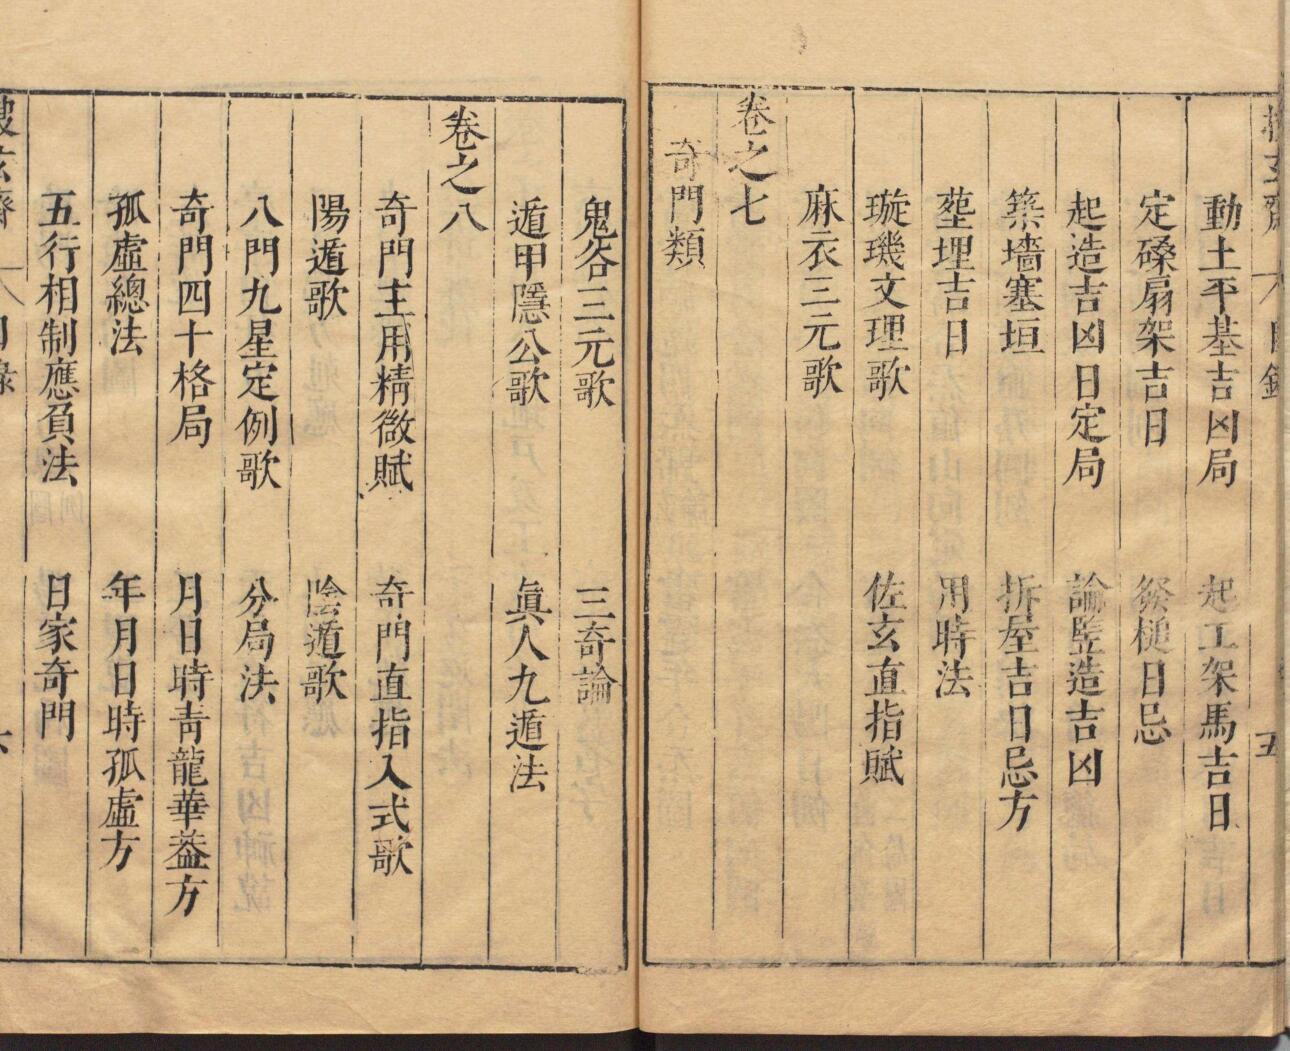 動土平基吉凶局　起工架馬吉日
定磉扇架吉日　發槌日忌
起造吉凶日定局　論竪造吉凶
築墻塞垣　拆屋吉日忌方
塟埋吉日　用時法
璇璣文理歌　佐玄直指賦
麻衣三元歌
卷之七
奇門類
鬼谷三元歌　三奇論
遁甲隱公歌　眞人九遁法
卷之八
奇門主用精微賦　奇門直指入式歌
陽遁歌　陰遁歌
八門九星定例歌　分局法
奇門四十格局　月日時青龍華葢方
孤虛總法　年月日時孤虛方
五行相制應負法　日家奇門